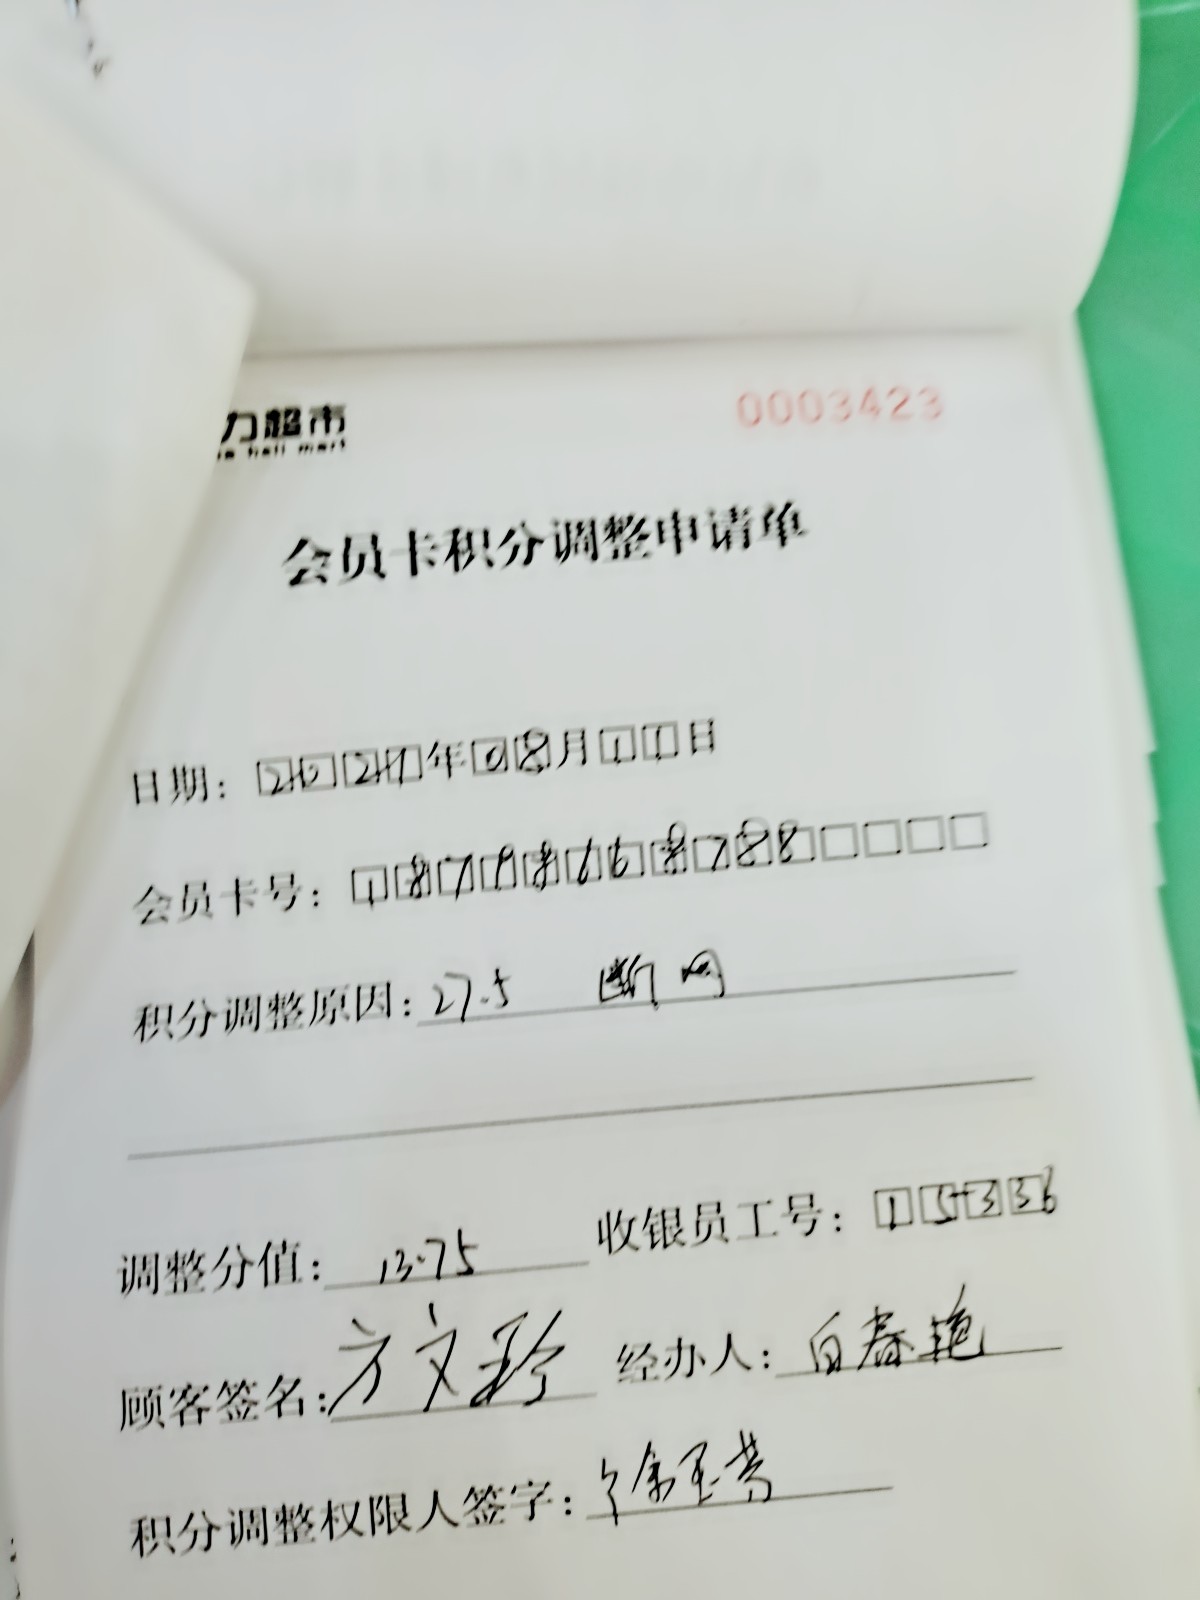 力超市 0003423
heli mart
会员卡积分调整申请单
日期：2021年08月11日
会员卡号：18798668788
积分调整原因：27.5 断网
调整分值：13.75 收银员工号：15336
顾客签名：方文珍 经办人：白春艳
积分调整权限人签字：徐玉芳